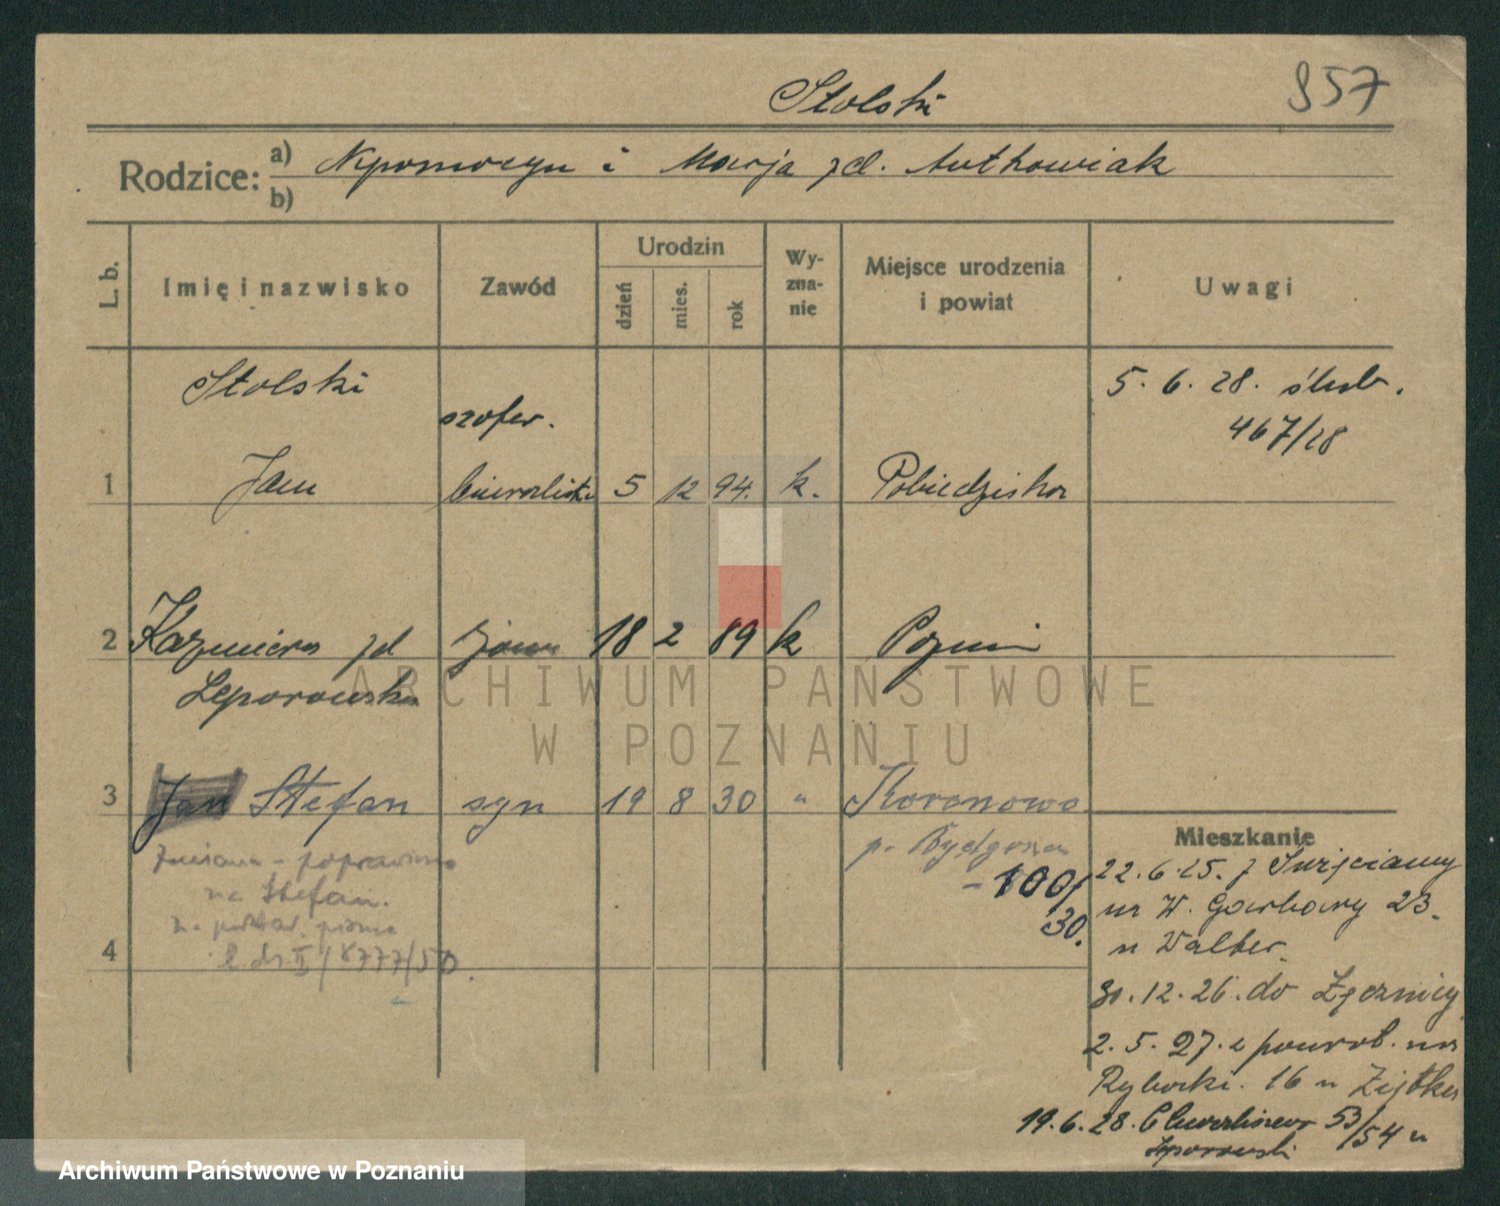 Stolski
957
Rodzice: a) Npomocyn i Marja zd. Antkowiak
b)
L. b.
Imię i nazwisko
Zawód
Urodzin
dzień
mies.
rok
Wy-
zna-
nie
Miejsce urodzenia
i powiat
Uwagi
Stolski
szofer.
5. 6. 28. ślub.
467/28
1 Jan 5 12 94. k. Pobiedziska
2 Kazmiera zd żona 18 2 89 k Pozna
Leporowska
3 Jan Stefan syn 19 8 30 " Koronowo
p. Bydgoszcz
- 100/
30.
Zmiana - poprawiono
na Stefan.
l. dz II / 8777/50.
4
Mieszkanie
22. 6. 25. z
W. Garbary 23.
u Walter.
30. 12. 26. do Łęcznicy
2. 5. 27. z powrob. na
Rybacki. 16 u Ziętka
19. 6. 28. Chwaliszewo 53/54 u
Leporowski
ARCHIWUM PAŃSTWOWE
W POZNANIU
Archiwum Państwowe w Poznaniu